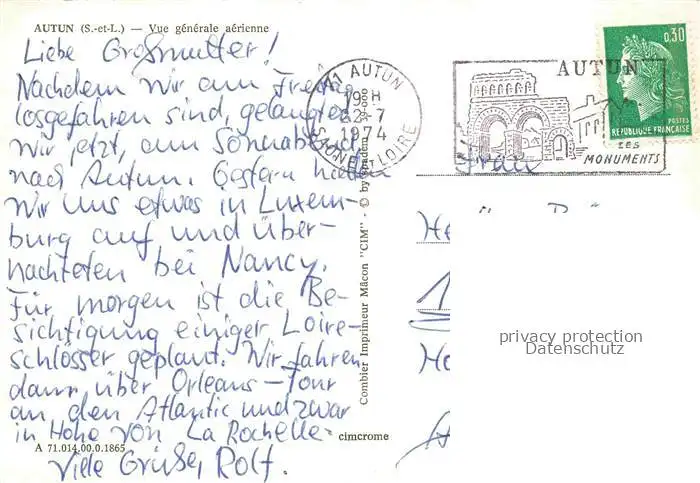 AUTUN (S.-et-L.) — Vue générale aérienne
Liebe Großmutter!
Nachdem wir am Freitag
losgefahren sind, gelangten
wir jetzt, am Sonnabend
nach Autun. Gestern hielten
wir uns etwas in Luxem-
burg auf und über-
nachteten bei Nancy.
Für morgen ist die Be-
sichtigung einiger Loire-
schlösser geplant. Wir fahren
dann über Orleans - Tour
an den Atlantic und zwar
in Höhe von La Rochelle.
Viele Grüße, Rolf.
A 71.014.00.0.1865
cimcrome
Combier Imprimeur Mâcon "CIM" - © by
71 AUTUN
19H
22-7
1974
SAONE-ET-LOIRE
AUTUN
SES
MONUMENTS
0,30
POSTES
REPUBLIQUE FRANÇAISE
Frau
privacy protection
Datenschutz